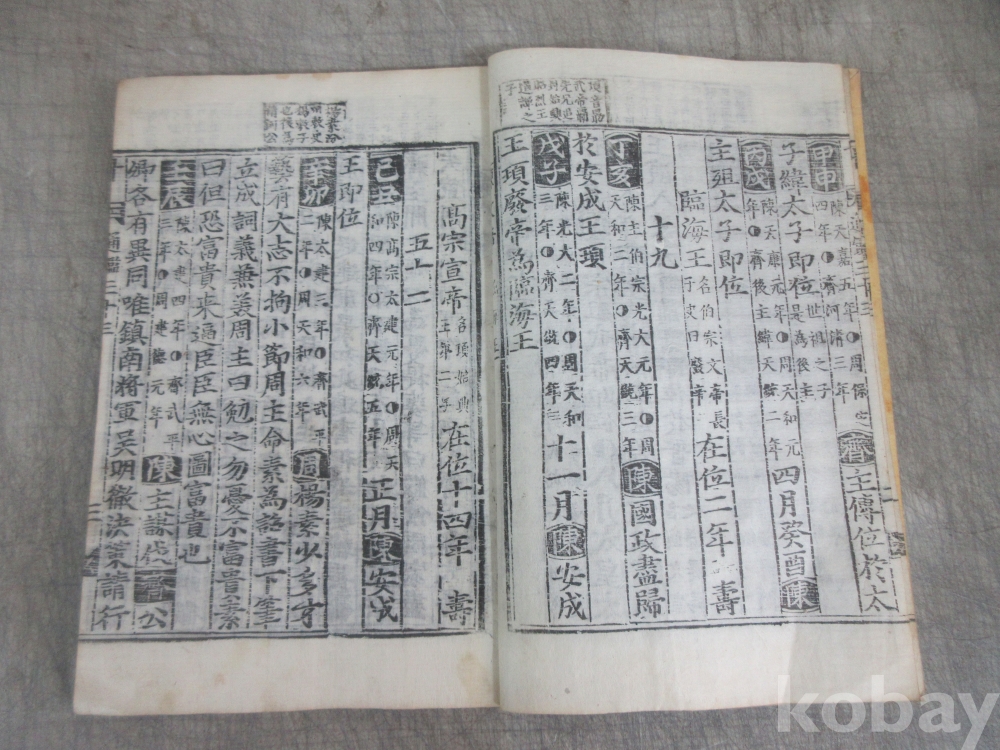 頊音勗
封始興
昭烈王
道譚之
子
甲申陳天嘉五年○周保定四年○齊河清三年齊主傳位於太
子緯太子即位世祖之子是為後主
丙戌陳天康元年○周天和元年○齊後主緯天統二年四月癸酉陳
主殂太子即位
臨海王名伯宗文帝長子史曰廢帝在位二年壽
十九
丁亥陳主伯宗光大元年○周天和二年○齊天統三年陳國政盡歸
於安成王頊
戊子陳光大二年○周天和三年○齊天統四年十一月陳安成
王頊廢帝為臨海王
高宗宣帝名頊始興王第二子在位十四年壽
五十二
己丑陳高宗太建元年○周天和四年○齊天統五年正月陳安成
王即位
辛卯陳太建三年○齊武平二年○周天和六年周楊素少多才
藝有大志不拘小節周主命素為詔書下筆
立成詞義兼美周主曰勉之勿憂不富貴素
曰但恐富貴来逼臣臣無心圖富貴也
壬辰陳太建四年○齊武平三年○周建德元年陳主謀伐齊公
卿各有異同唯鎮南將軍吳明徹決策請行
kobay